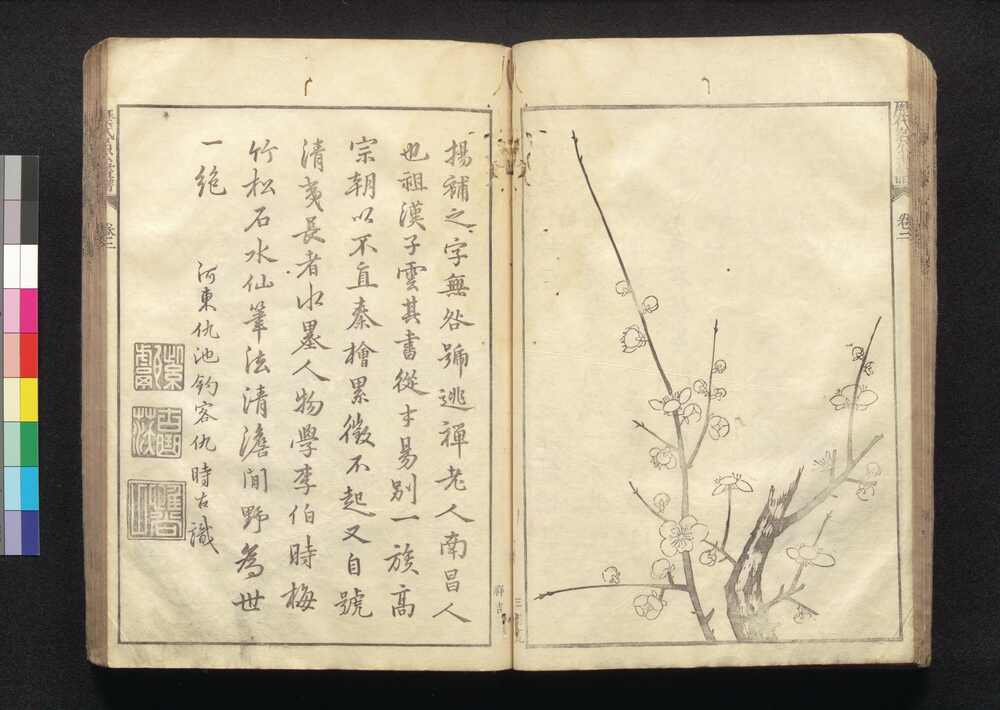 卷二
揚補之字無咎號逃禪老人南昌人
也祖漢子雲其書從才易別一族高
宗朝以不直秦檜累徵不起又自號
清夷長者水墨人物學李伯時梅
竹松石水仙筆法清澹間野為世
一絕
河東仇池釣客仇時古識
卷二